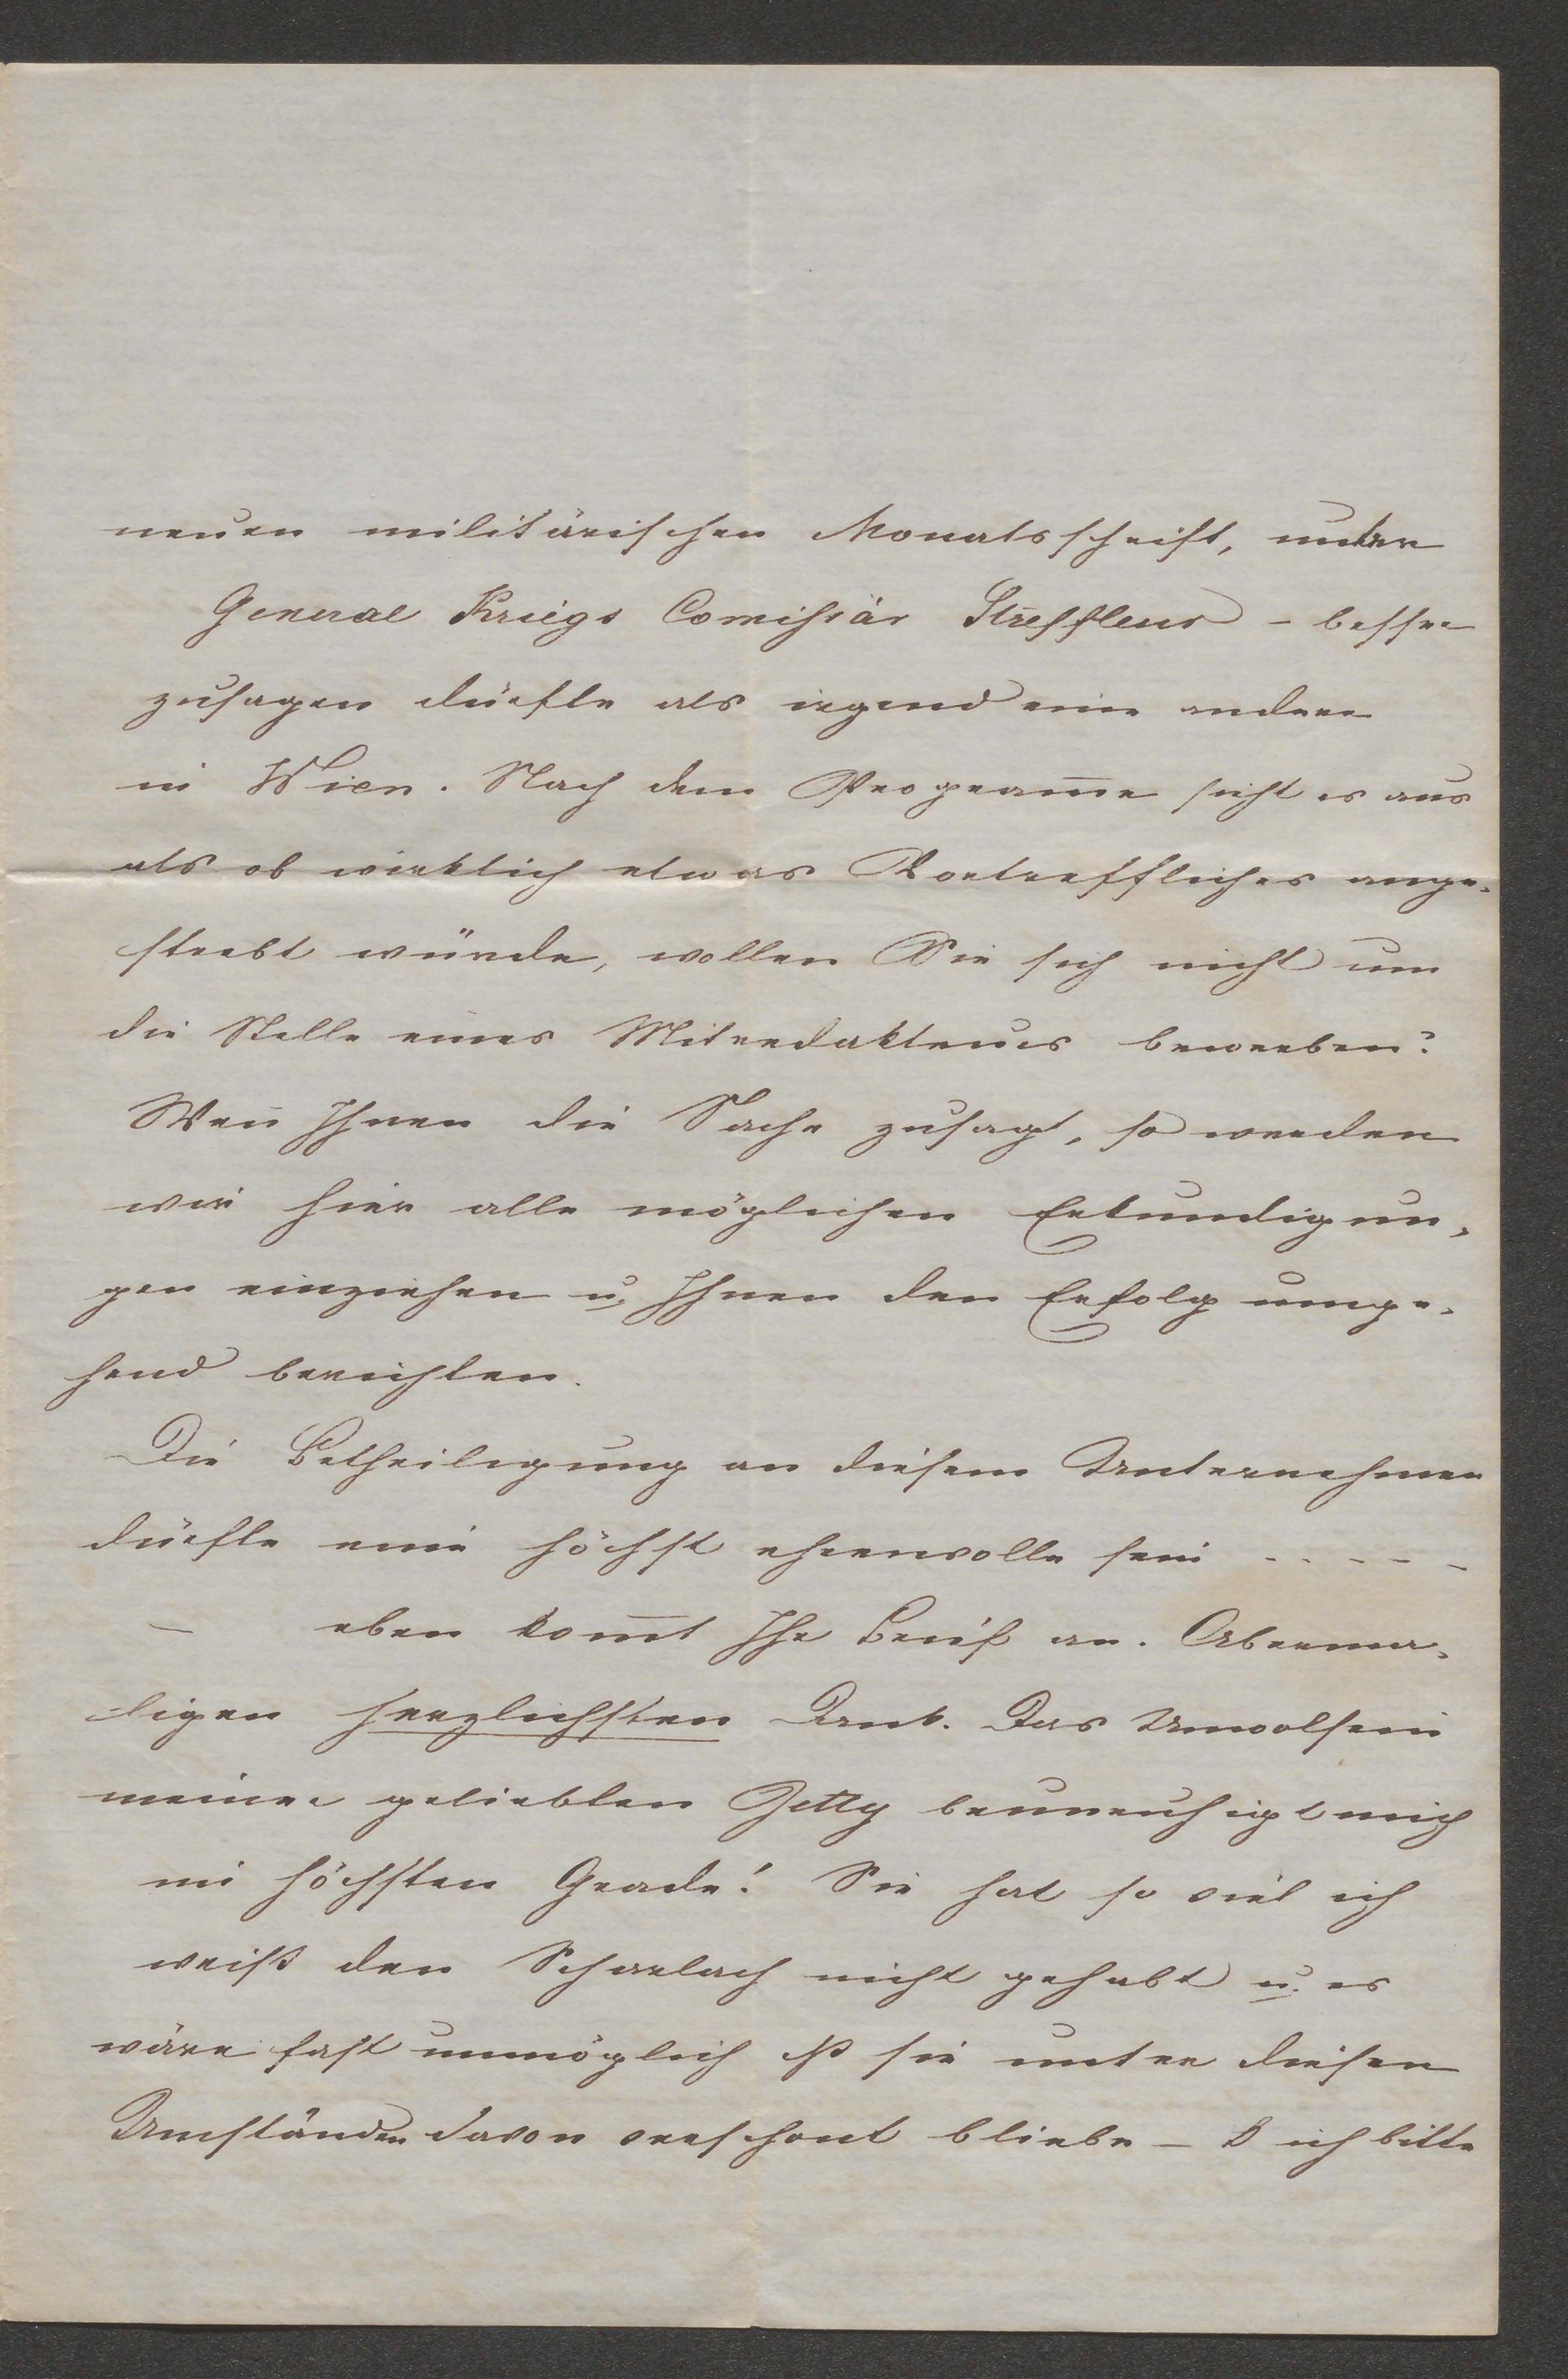 neuen militärischen Monatsschrift, unter
General Kriegs Comissär Streffleur – besser
zusagen dürfte als irgend eine andere
in Wien. Nach dem Program̅e sieht es aus
als ob wirklich etwas Vortreffliches ange-
strebt würde, wollen Sie sich nicht um
die Stelle eines Mitredakteurs bewerben?
Wen̅ Ihnen die Sache zusagt, so werden
wir hier alle möglichen Erkundigun-
gen einziehen u. Ihnen den Erfolg umge-
hend berichten.
Die Betheiligung an diesem Unternehmen
dürfte eine höchst ehrenvolle sein - - - - -
– eben kom̅t Ihr Brief an. Aberma-
ligen herzlichsten Dank. Das Unwolsein
meiner geliebten Jetty beunruhigt mich
im höchsten Grade! Sie hat so viel ich
weiß den Scharlach nicht gehabt u. es
wäre fast unmöglich dß sie unter diesen
Umständen davon verschont bliebe – O ich bitte